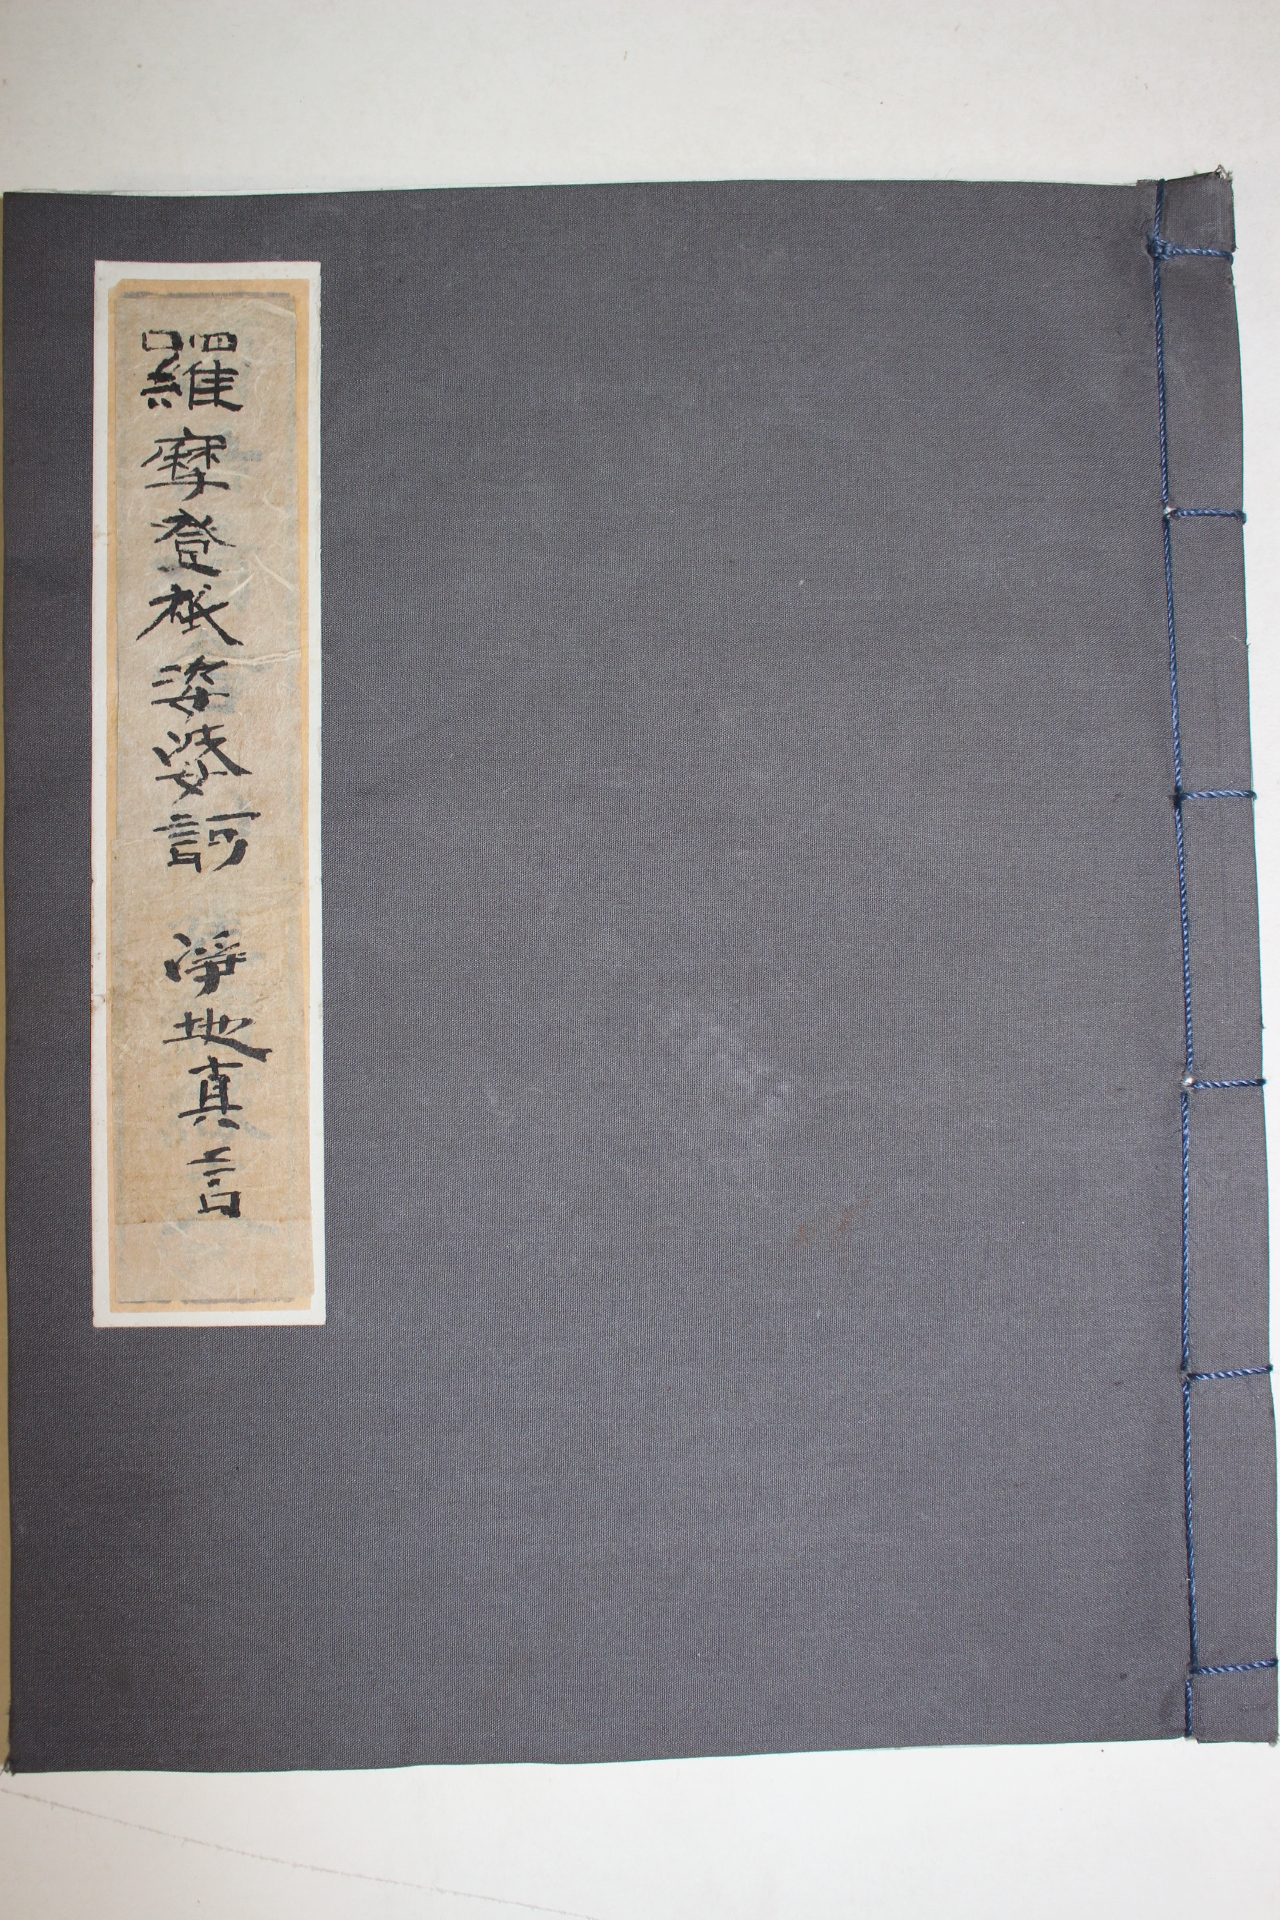 囉摩登祇娑婆訶 淨地真言